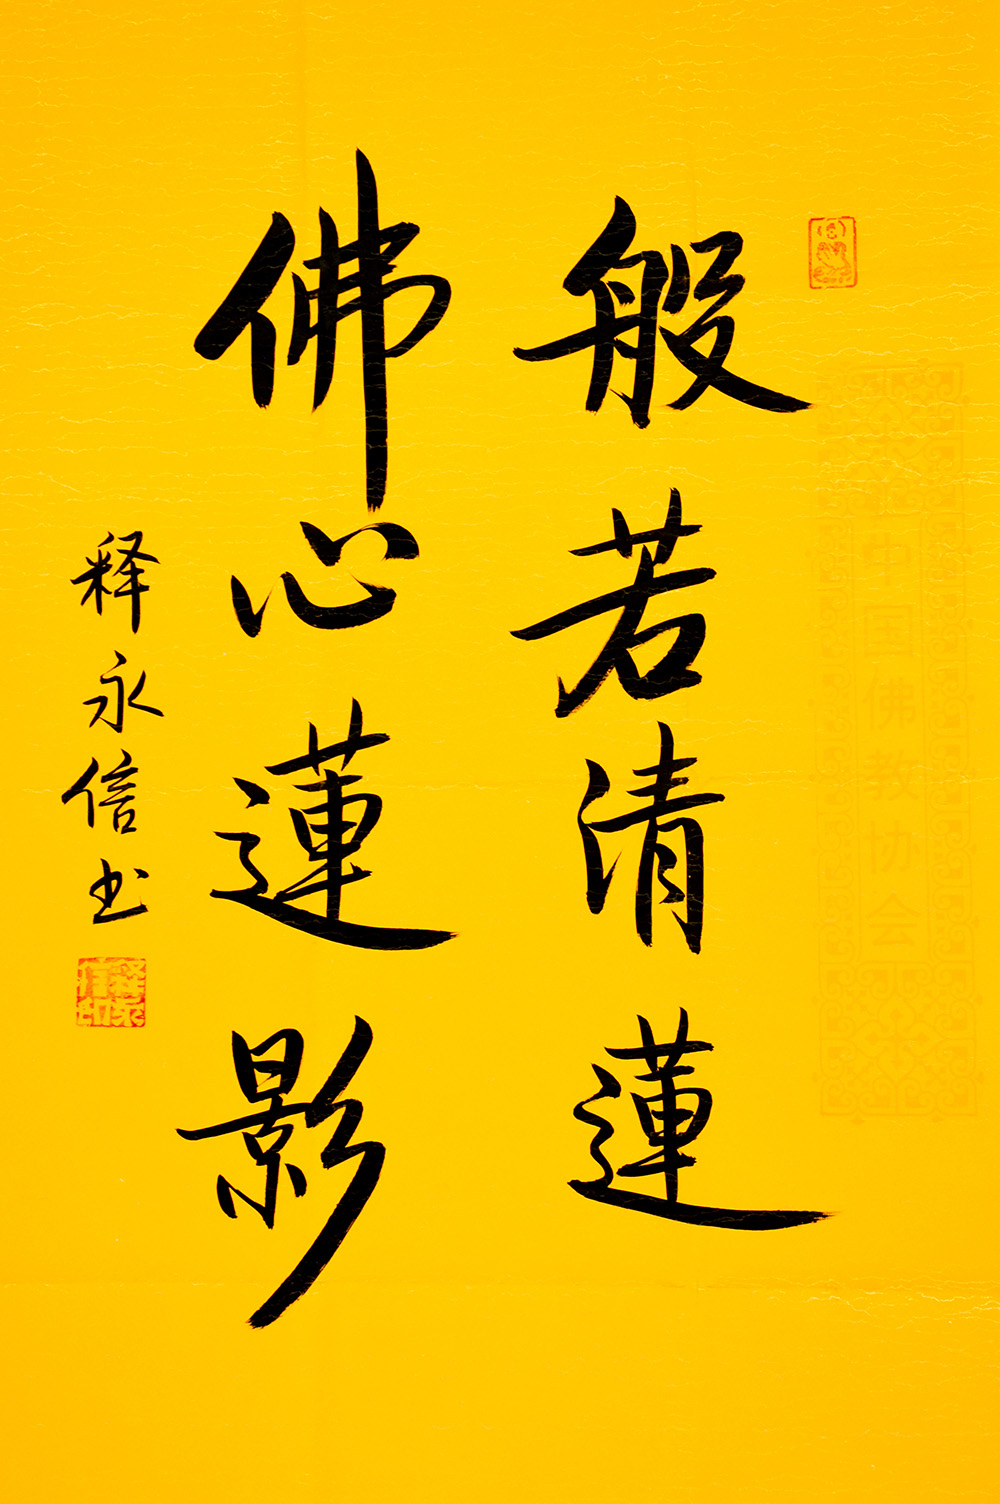 般若清蓮
佛心蓮影
释永信书
释永信印
中国佛教协会